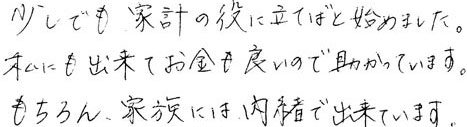 少しでも家計の役に立てばと始めました。
私にも出来てお金も良いので助かっています。
もちろん、家族には内緒で出来ています。